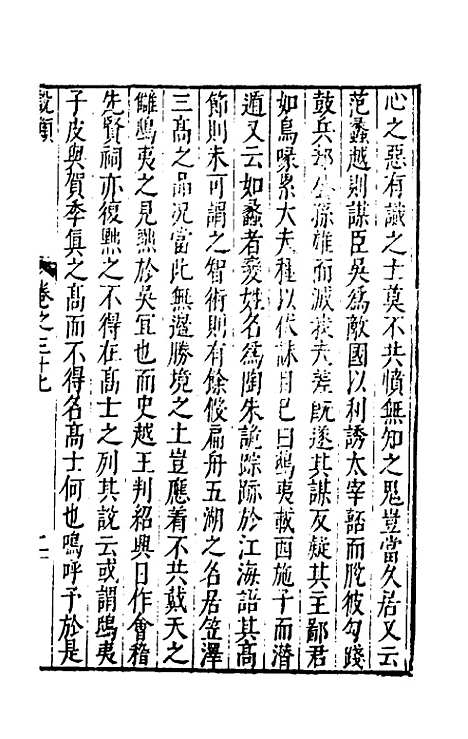 心之惡有識之士莫不共憤無知之鬼豈當久居又云
范蠡越則謀臣吳爲敵國以利誘太宰嚭而脫彼勾踐
鼓兵却公孫雄而滅我夫差既遂其謀反疑其主鄙君
如鳥喙累大夫種以伏誅目己曰鴟夷載西施子而潛
遁又云如蠡者變姓名爲陶朱詭踪跡於江海語其高
節則未可謂之智術則有餘假扁舟五湖之名居笠澤
三高之品況當此無邊勝境之土豈應着不共戴天之
讎鴟夷之見黜於吳宜也而史越王判紹興日作會稽
先賢祠亦復黜之不得在高士之列其說云或謂鴟夷
子皮與賀季真之高而不得名高士何也嗚呼予於是
說頤
卷之三十七